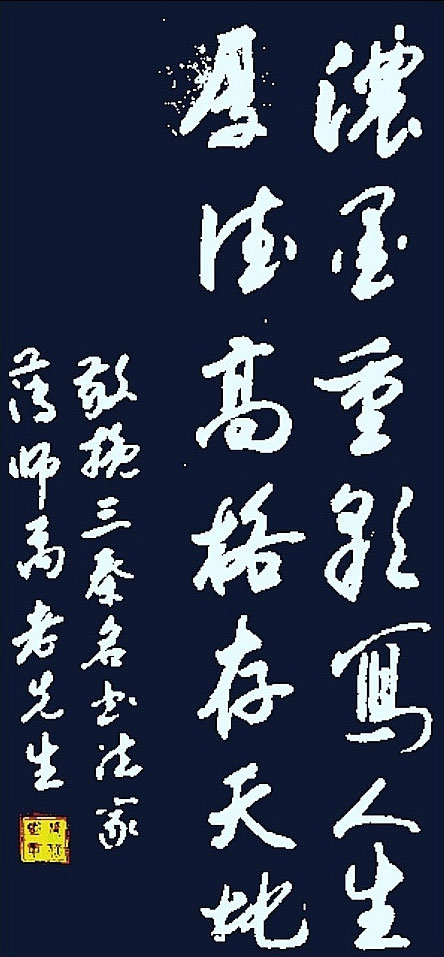 濃墨重彩寫人生
厚德高格存天地
敬挽三秦名书法家
薄师高老先生